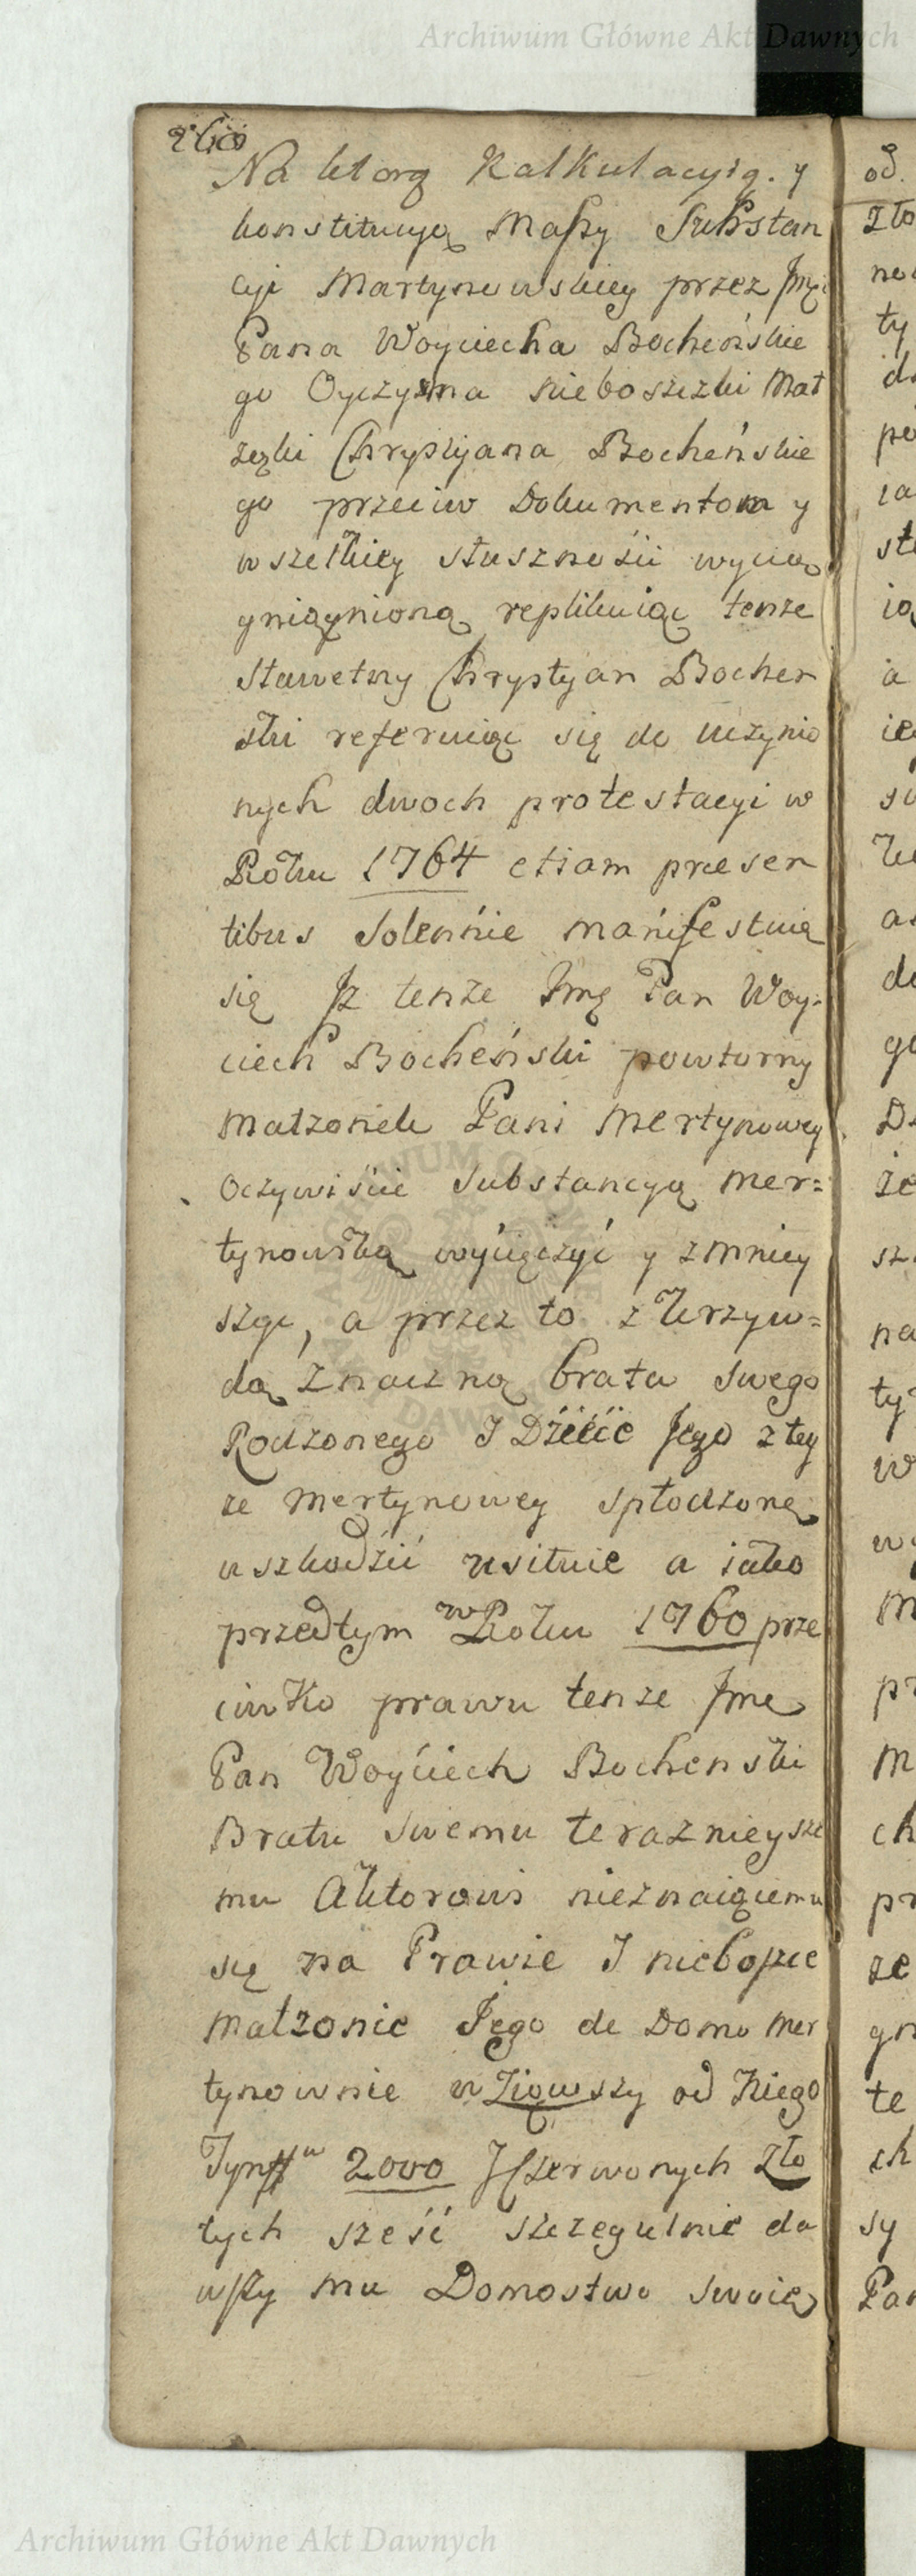 Archiwum Główne Akt Dawnych
Na ktorą Kalkulacyią. y
konstitucyą Maszy Substan
cyi Martynowskiey przez Jmći
Pana Woyciecha Bocheńskie
go Oyczyma nieboszczki Mał
żązki Chryszyana Bocheńskie
go przeciw Dokumentom y
wszelkiey słuszności wycią
gniągnioną replikuiąc tenże
Sławetny Chrystyan Bocheń
ski referuiąc się do uczynio
nych dwoch protestacyi w
Roku 1764 etiam presen
tibus Solennie manifestuią
się Jż tenże Jmę Pan Woy:
ciech Bocheński powtorny
Małzonek Pani Mertynowey
Oczywiście Substancyą Mer=
tynowską wyciączyć y zmniey
szyć, a przez to z krzyw=
dą znaczną brata swego
Rodzonego J Dźiećię Jego z tey
że Mertynowey spłodzone
uszkodźić usiłuie a iako
przedtym w Roku 1760 prze
ciwko prawu tenże Jme
Pan Woyćiech Bochenski
Bratu swemu teraznieysze
mu Aktorowi nieznaiącemu
się na Prawie J nieboszce
Małżonie Jego de Domo Mer
tynownie wziąwszy od Niego
Tynffw 2000 J Czerwonych Zło
tych sześć szczegulnie da
wszy mu Domostwo swoie
od.
zło
ty
sto
a
w
pr
ch
pr
ze
te
ch
sy
Pan
Archiwum Główne Akt Dawnych